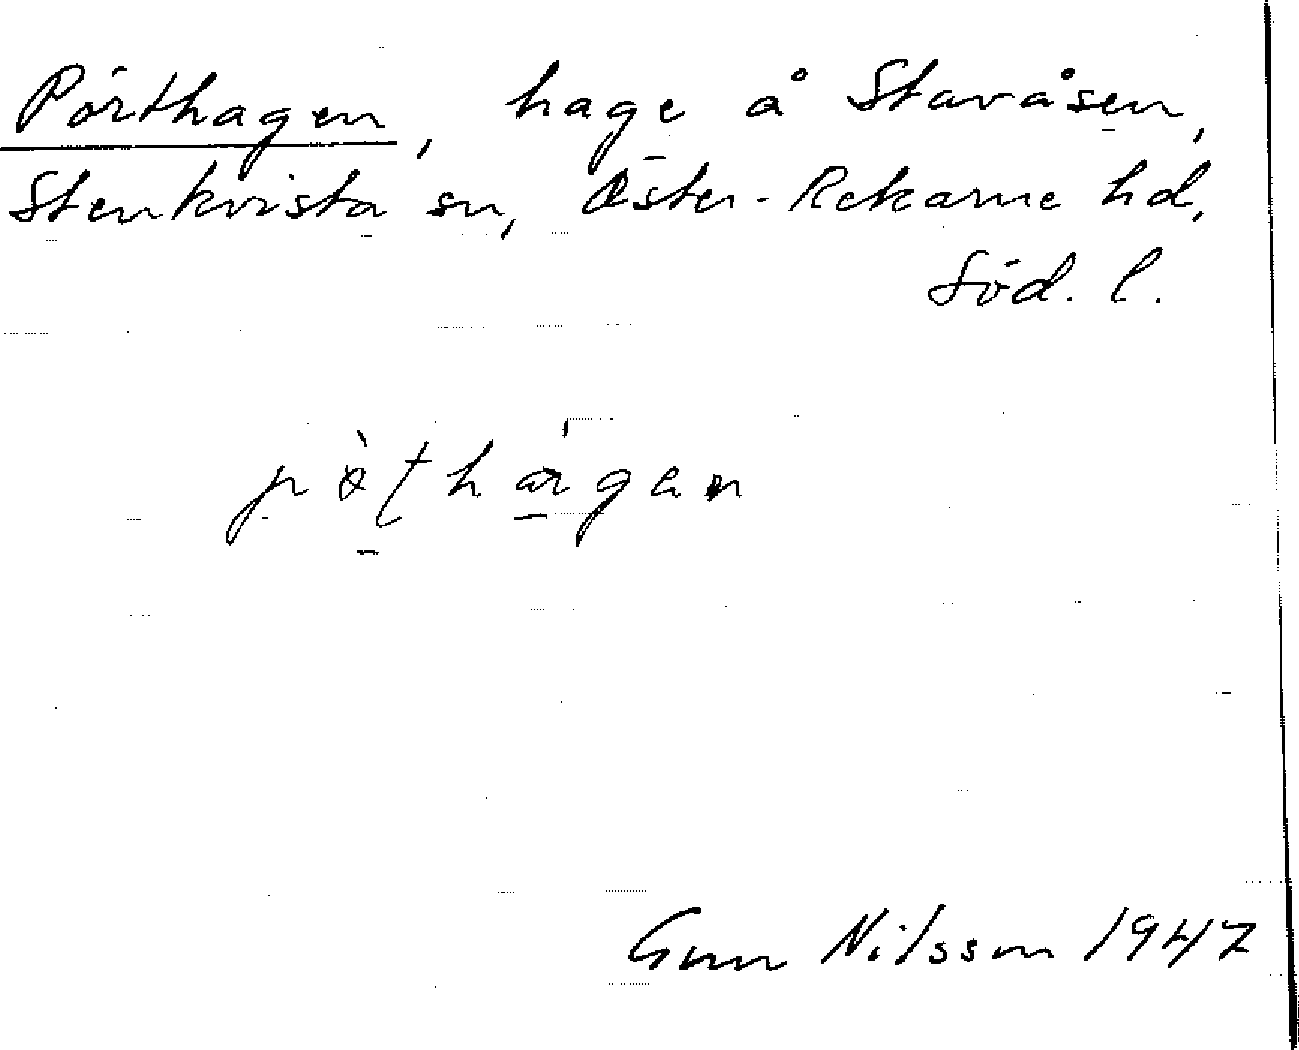 Pörthagen, hage å Stavåsen,
Stenkvista sn, Öster-Rekarne hd,
Söd. l.
Gun Nilsson 1947